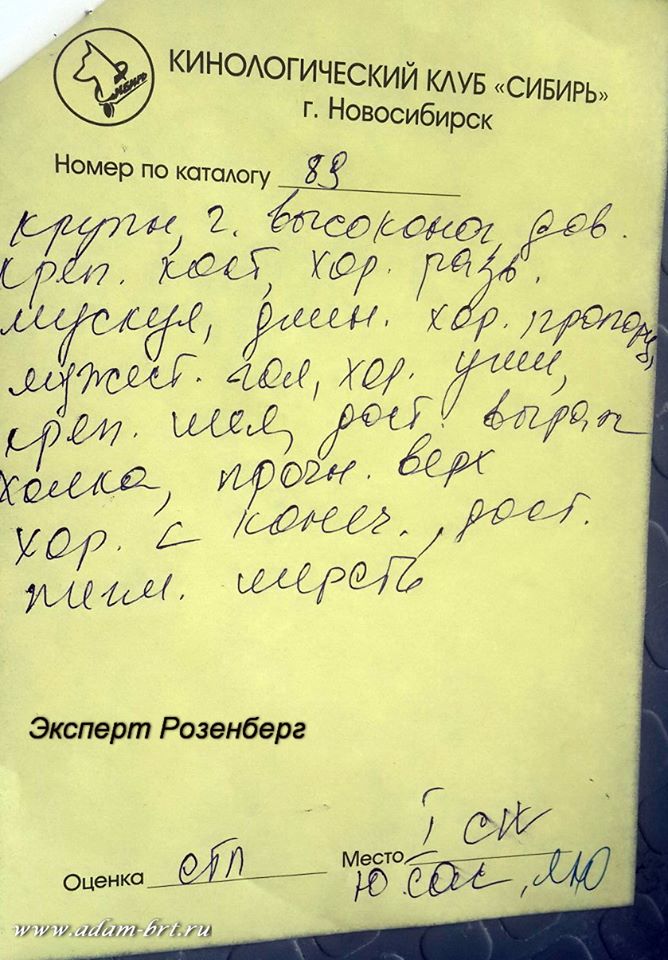 СИБИРЬ
КИНОЛОГИЧЕСКИЙ КЛУБ «СИБИРЬ»
г. Новосибирск
Номер по каталогу 89
крупн, г. высоконог, дов.
креп. кост, хор. разв.
мускул, длин. хор. пропорц,
мужест. гол, хор. уши,
креп. шея, дост. выраж
холка, прочн. верх
хор. < конеч., дост.
пигм. шерсть
Эксперт Розенберг
Оценка отл Место I СК
ЮСАС, ЛЮ
www.adam-brt.ru